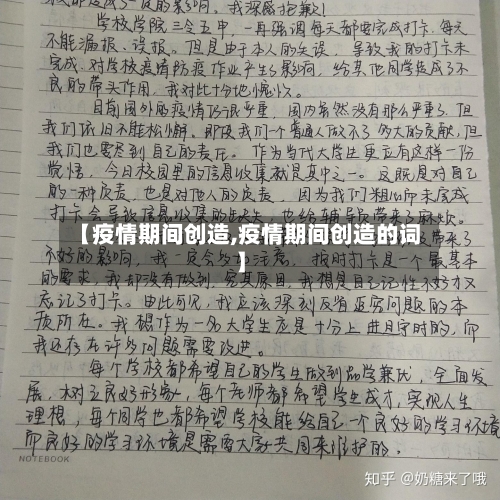 学校学院三令五申,一再强调每天都要完成打卡,每天
不能漏报、误报。但是由于本人的失误,导致我的打卡未
完成,对学校疫情防疫作业产生了影响,给其他同学造成了不
良的带头作用,我对此十分地愧疚。
目前国外的疫情仍很严重,国内虽然没有那么严重了,但
我们依旧不能松懈。即使我们个普通人做不了多大的贡献,但
我们也要尽到自己的责任。作为当代大学生更应有这样一份
觉悟,今日校园里的信息收集就是其中之一。这既是对自己
的一种负责,也是对他人的负责,因为我们粗心而未完成
打卡会导致信息收集的缺失,也给辅导员带来了麻烦。
【疫情期间创造,疫情期间创造的词
】
不好的影响,我一定会注意。按时打卡是一个最基本
的要求,我却没有做到,究其原因,我想是自己记性不好才又
忘记了打卡。由此可见,我应该深刻反省 问题的本
质所在。我想作为一名大学生应是十分上进且守时的,而
我还存在许多问题需要改进。
每个学校都希望自己的学生做到品学兼优,全面发
展,树立良好形象,每个老师都希望学生成才,实现人生
理想,每个同学也都希望学校能给自己一个良好的学习环境
而良好的学习环境是需要大家共同来维护的。
NOTEBOOK
知乎 @奶糖来了哦